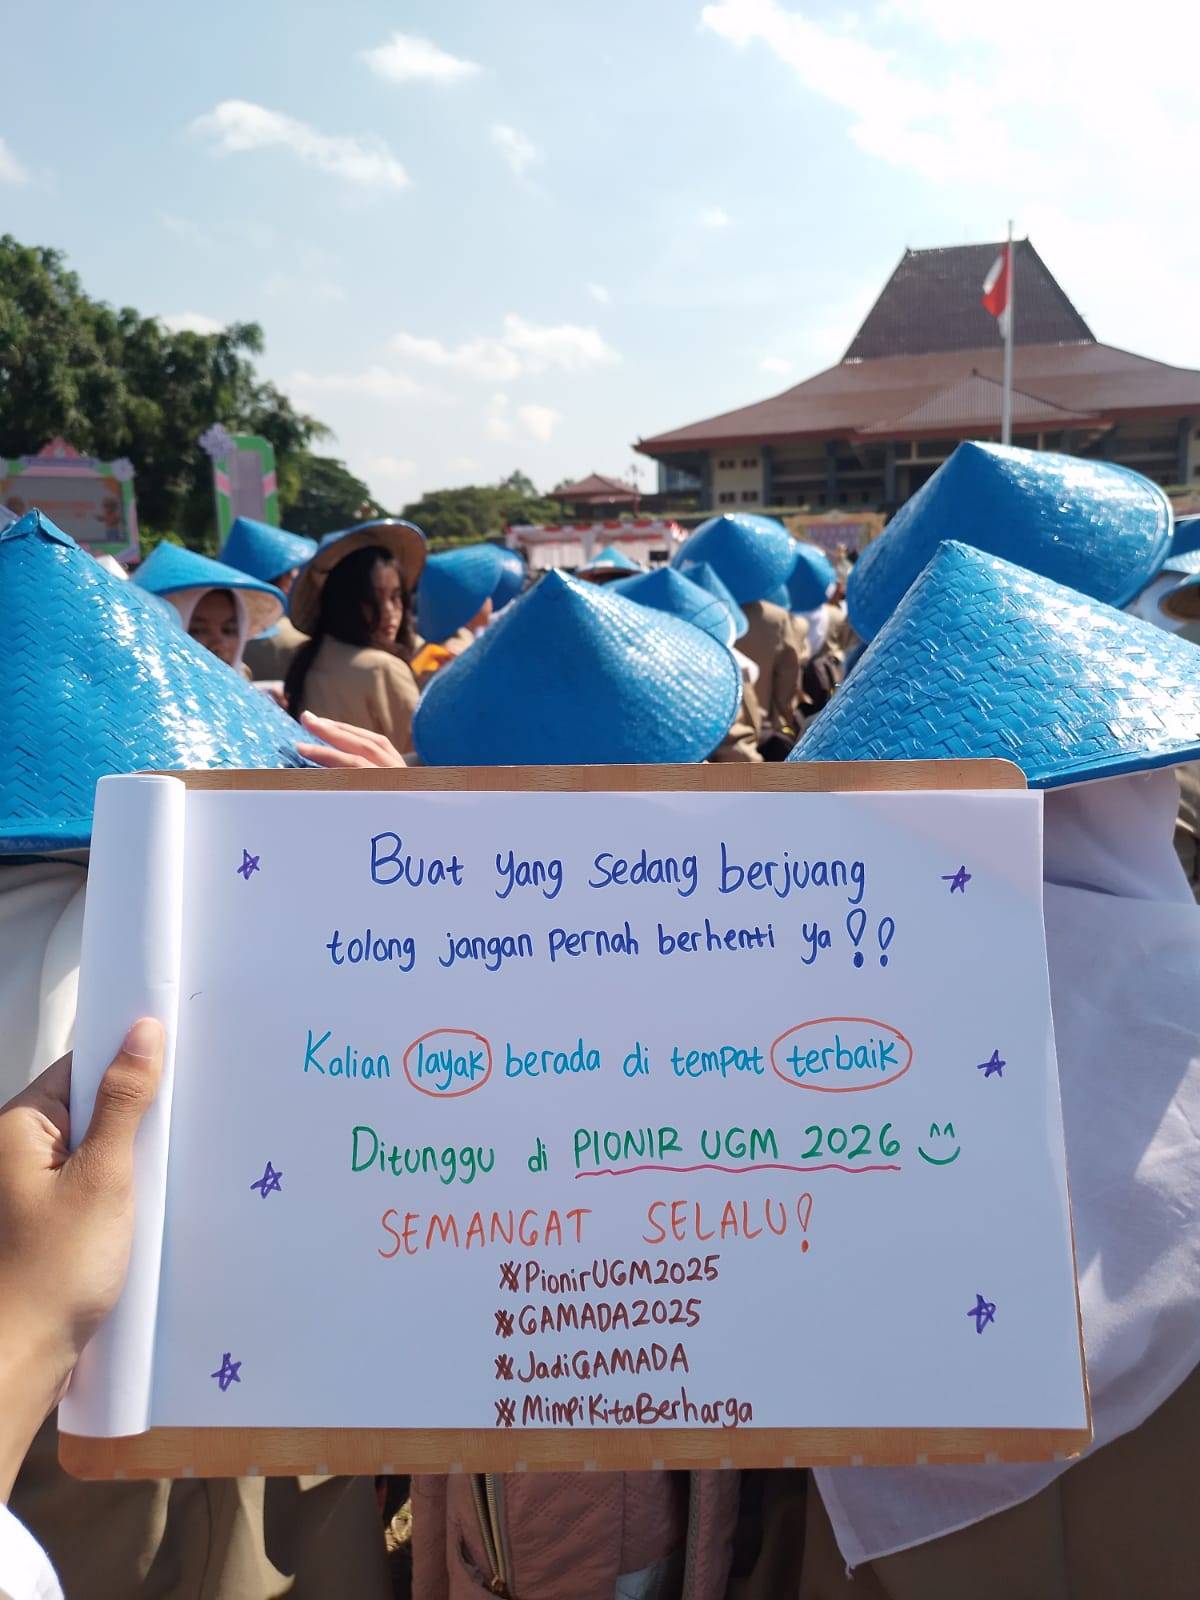 Buat yang sedang berjuang
tolong jangan pernah berhenti ya!!
Kalian layak berada di tempat terbaik
Ditunggu di PIONIR UGM 2026
SEMANGAT SELALU!
#PionirUGM2025
#GAMADA2025
#JadiGAMADA
#MimpiKitaBerharga